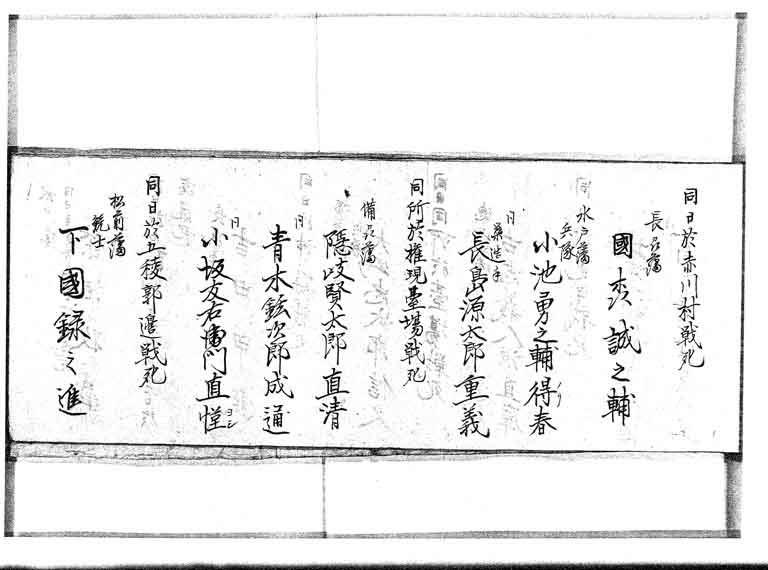 同日於赤川村戦死
長州藩
國森誠之輔
水戸藩
兵隊
小池勇之輔得春
同
築造手
長島源太郎重義
同所於権現臺場戦死
備州藩
隠岐賢太郎直清
同
青木鉉次郎成通
同
小坂友右衛門直
ヨシ
同日於五稜郭邉戦死
松前藩
銃士
下國録之進